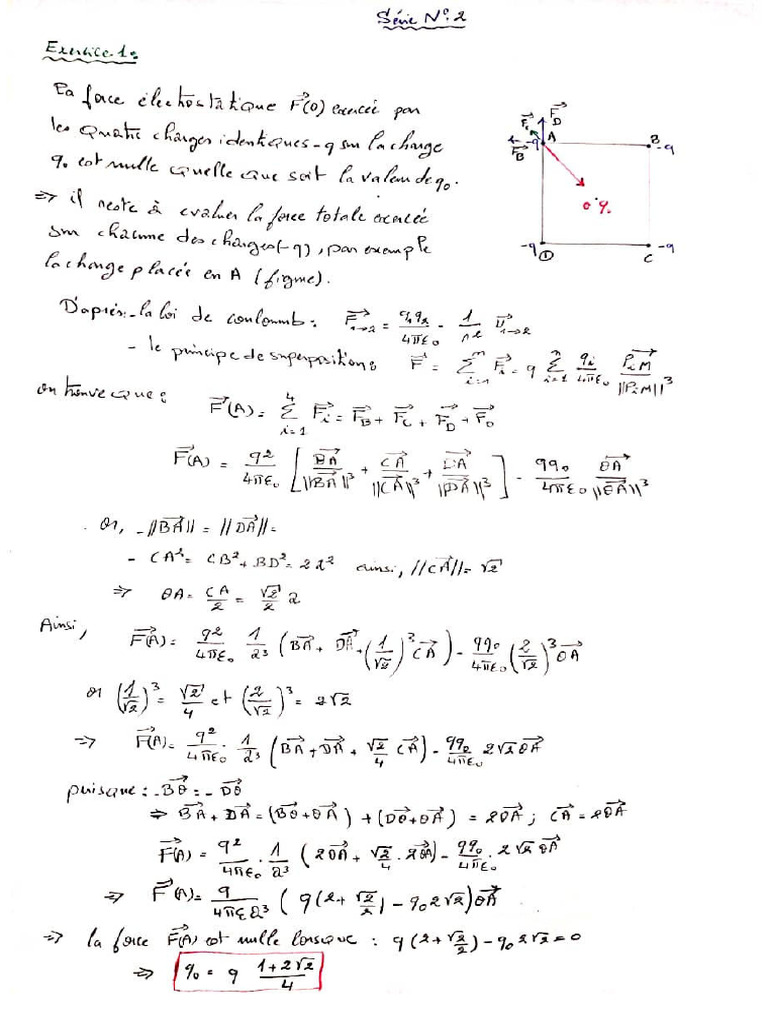 Série N° 2
Exercice 1:
La force électrostatique F⃗(O) exercée par
les quatre charges identiques -q sur la charge
q₀ est nulle quelle que soit la valeur de q₀.
⇒ il reste à evaluer la force totale exercée
sur chacune des charges (-q), par exemple
la charge placée en A (figure).
F⃗_D
F⃗_C
A
-q
B
-q
F⃗_B
O q₀
-q
D
C
-q
D'après: - la loi de coulomb: F⃗₁→₂ = q₁q₂/4πε₀ · 1/r² U⃗₁→₂
- le principe de superposition: F⃗ = Σ(i=1,n) F⃗ᵢ = q Σ(i=1,n) qᵢ/4πε₀ P⃗ᵢM/||P⃗ᵢM||³
on trouve que: F⃗(A) = Σ(i=1,4) F⃗ᵢ = F⃗_B + F⃗_C + F⃗_D + F⃗_O
F⃗(A) = q²/4πε₀ [ BA⃗/||BA⃗||³ + CA⃗/||CA⃗||³ + DA⃗/||DA⃗||³ ] - qq₀/4πε₀ OA⃗/||OA⃗||³
or, - ||BA⃗|| = ||DA⃗|| =
- CA² = CB² + BD² = 2a² ainsi, ||CA⃗|| = √2
⇒ OA = CA/2 = √2/2 a
Ainsi, F⃗(A) = q²/4πε₀ 1/a³ (BA⃗ + DA⃗ + (1/√2)³ CA⃗) - qq₀/4πε₀ (2/√2)³ OA⃗
or (1/√2)³ = √2/4 et (2/√2)³ = 2√2
⇒ F⃗(A) = q²/4πε₀ · 1/a³ (BA⃗ + DA⃗ + √2/4 CA⃗) - qq₀/4πε₀ 2√2 OA⃗
puisque: - BO⃗ = - DO⃗
⇒ BA⃗ + DA⃗ = (BO⃗ + OA⃗) + (DO⃗ + OA⃗) = 2OA⃗ ; CA⃗ = 2OA⃗
F⃗(A) = q²/4πε₀ · 1/a³ (2OA⃗ + √2/4 · 2OA⃗) - qq₀/4πε₀ · 2√2 OA⃗
⇒ F⃗(A) = q/4πε₀a³ (q(2 + √2/2) - q₀ 2√2) OA⃗
⇒ la force F⃗(A) est nulle lorsque : q(2 + √2/2) - q₀ 2√2 = 0
⇒ q₀ = q (1 + 2√2)/4